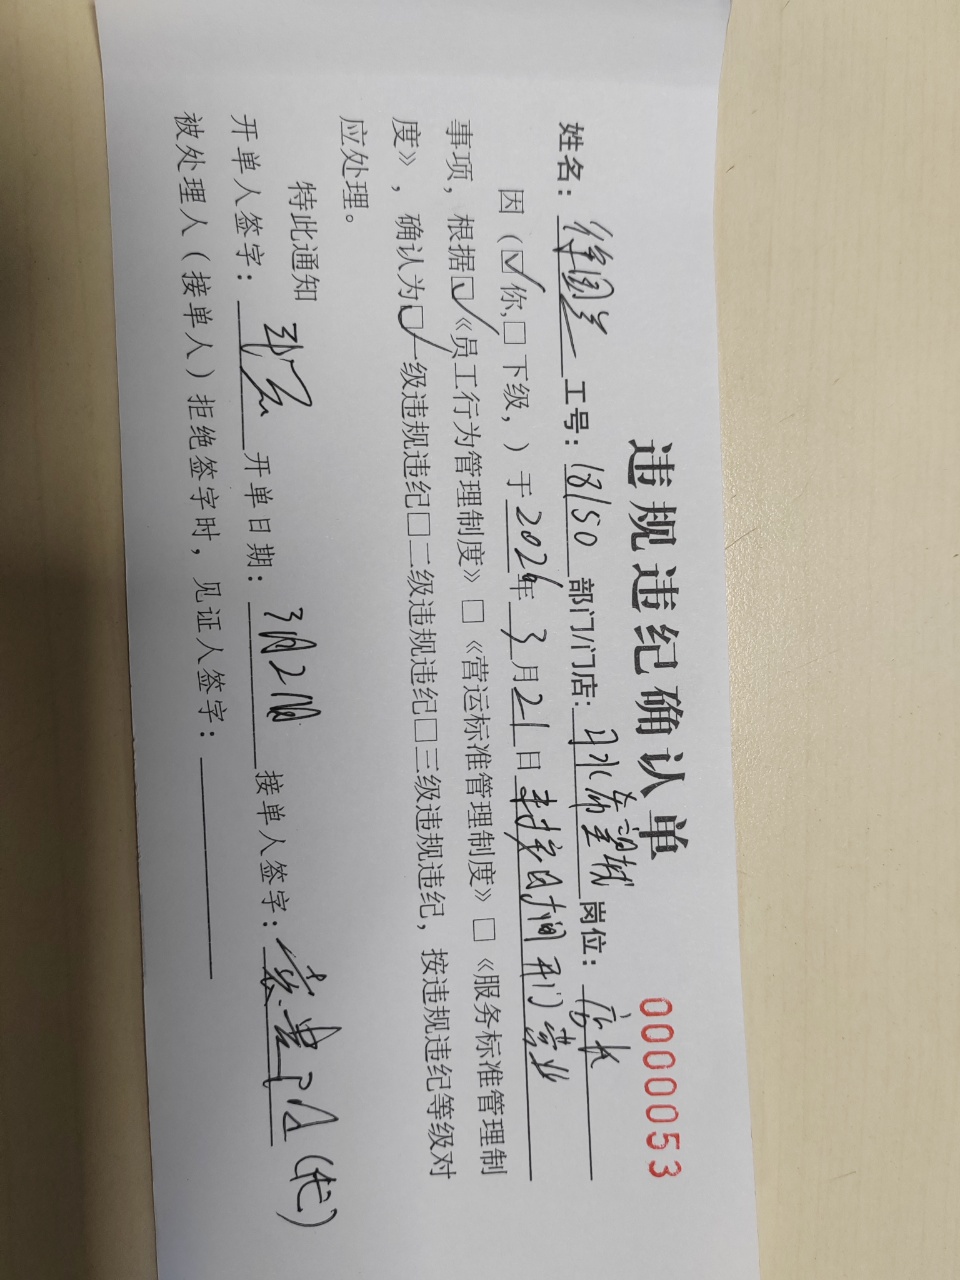 违规违纪确认单
0000053
姓名： 工号：18150 部门/门店：习水希望城 岗位：店长
因（☑你,□下级，）于2024年3月21日 时间开门营业
事项，根据☑《员工行为管理制度》□《营运标准管理制度》□《服务标准管理制
度》，确认为☑一级违规违纪□二级违规违纪□三级违规违纪，按违规违纪等级对
应处理。
特此通知
开单人签字： 开单日期：3月21日 接单人签字： (代)
被处理人（接单人）拒绝签字时，见证人签字：